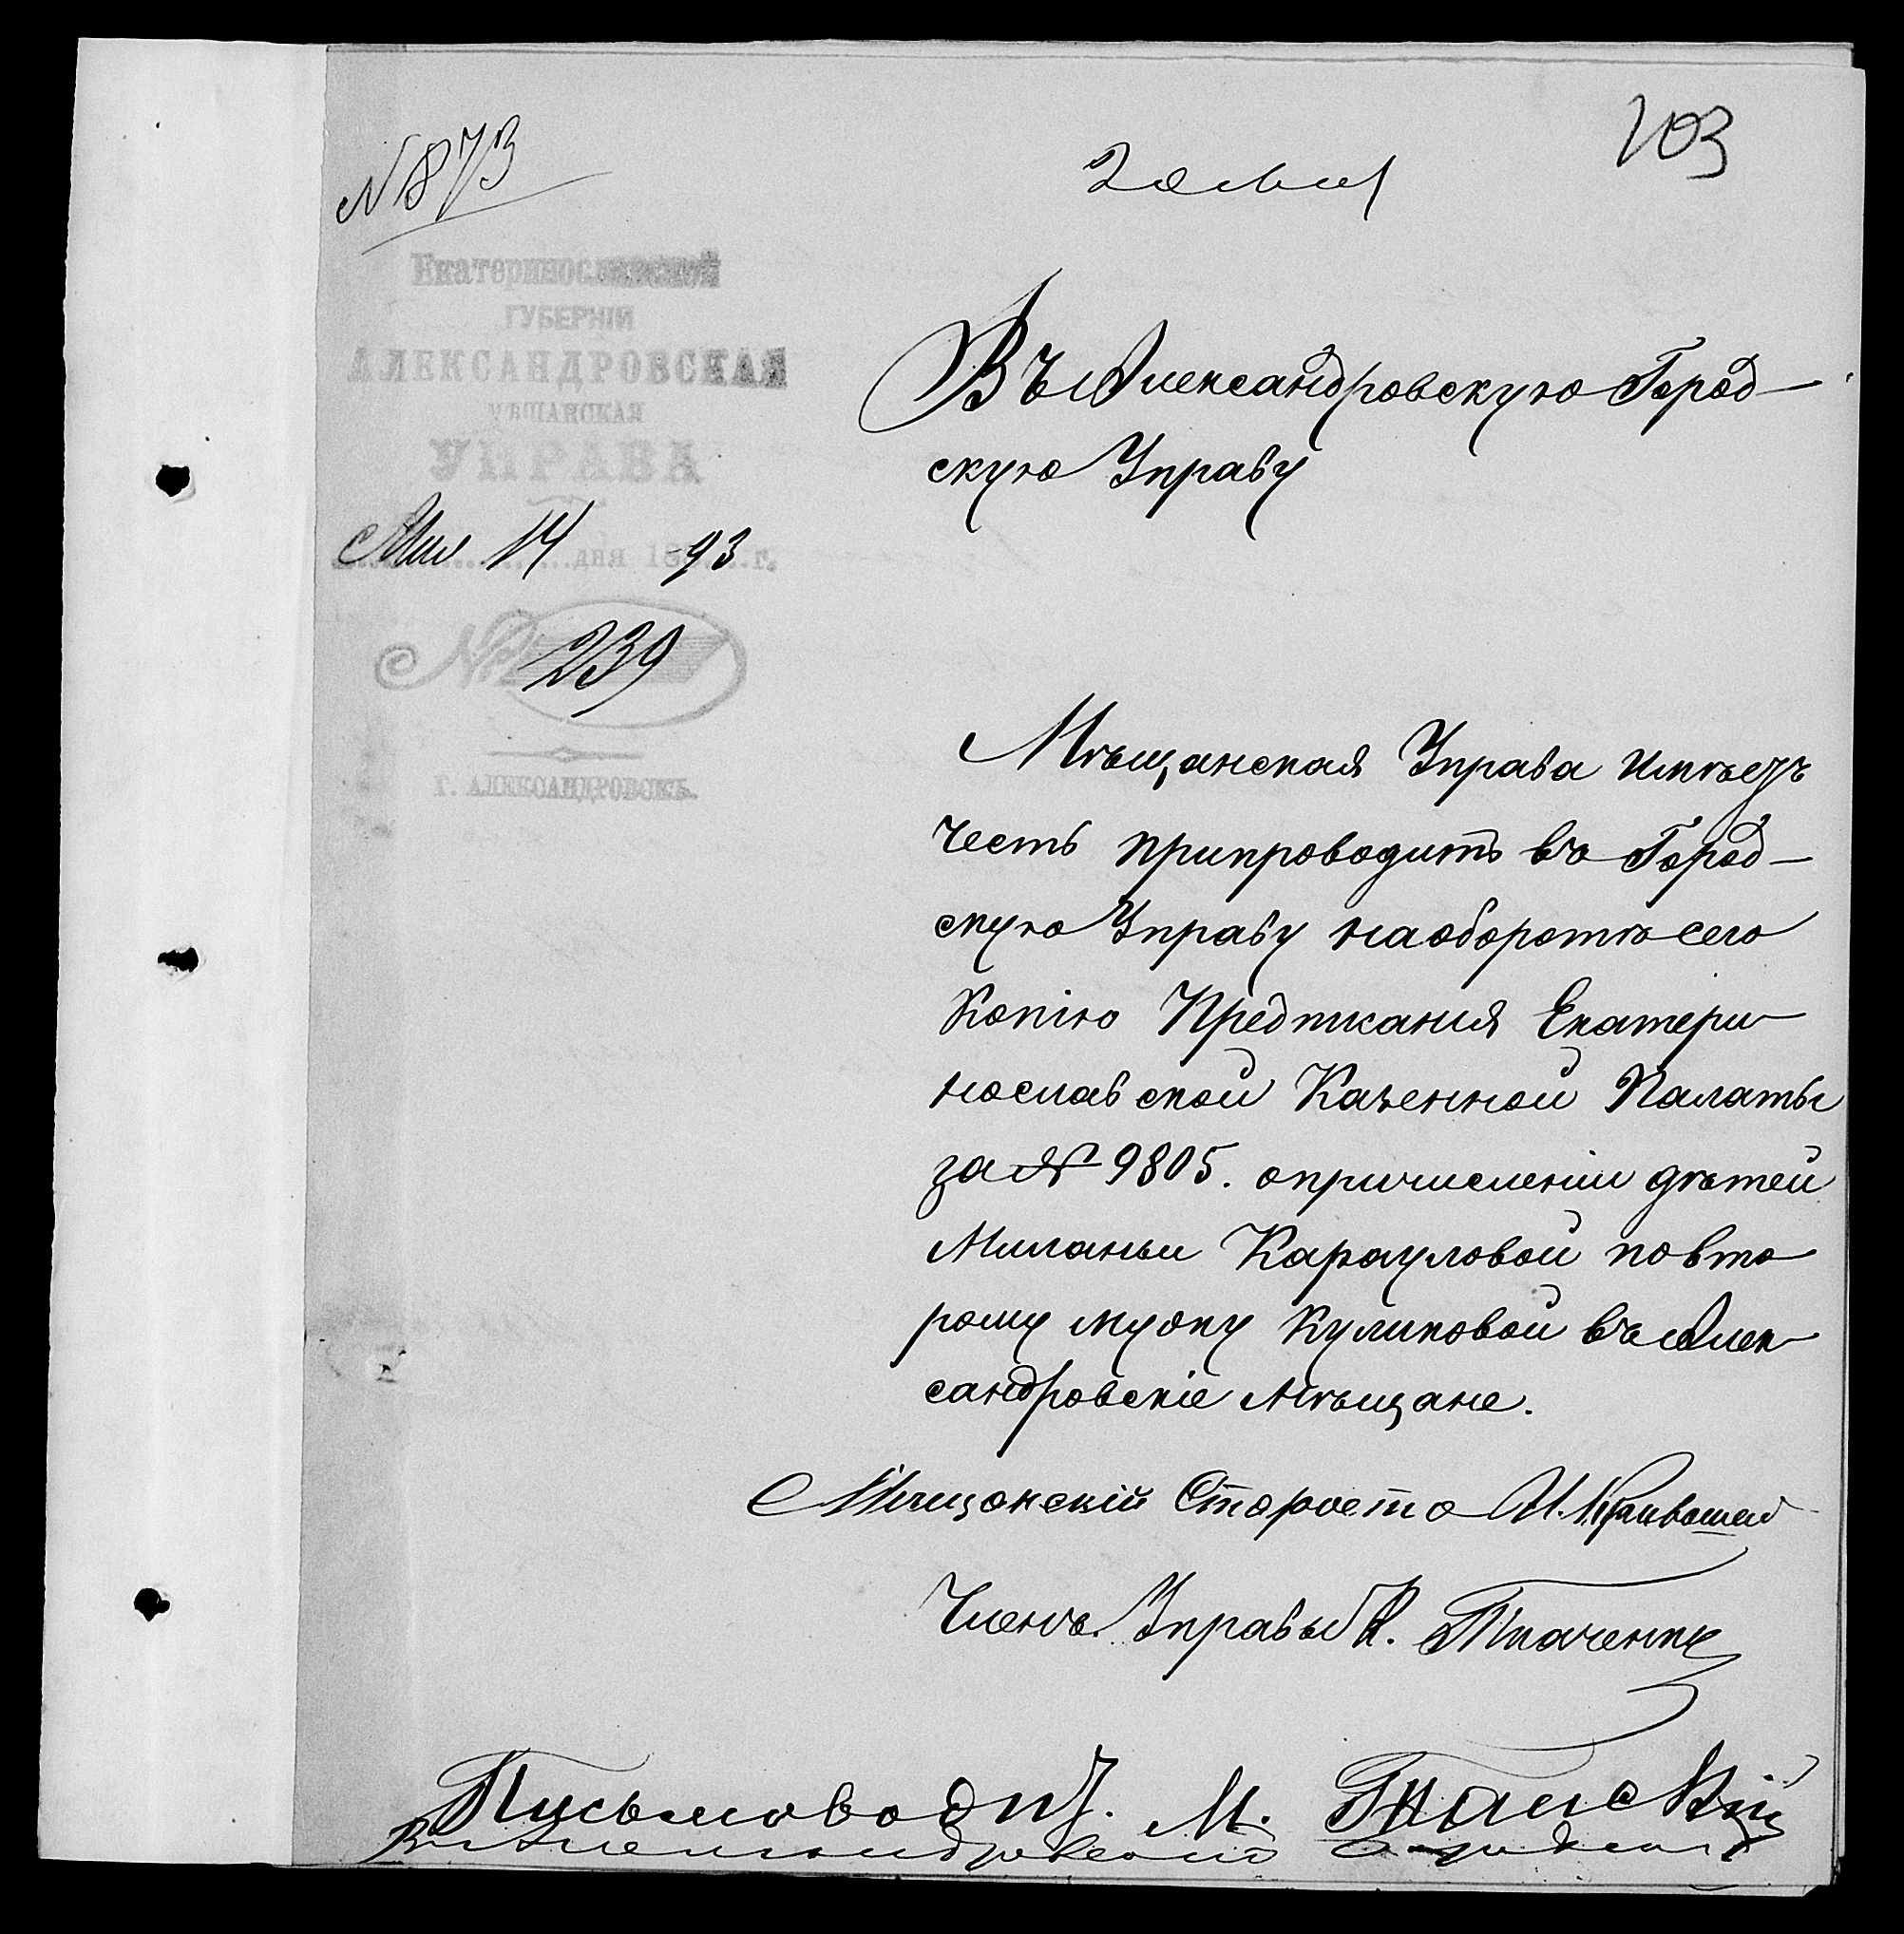 103
№ 873
Екатеринославской
ГУБЕРНІИ
АЛЕКСАНДРОВСКАЯ
МѢЩАНСКАЯ
УПРАВА
Мая 14 дня 1893 г.
№ 239
г. АЛЕКСАНДРОВСКЪ.
Въ Александровскую Город-
скую Управу
Мѣщанская Управа имѣетъ
честь припроводить въ Город-
скую Управу на оборотѣ сего
Копію Предписания Екатери-
нославской Казенной Палаты
за № 9805. о причисленіи дѣтей
Миланьи Карауловой по вто
рому мужу Куликовой въ Алек-
сандровскіе мѣщане.
Мѣщанскій Староста И. Кривошей
Членъ Управы К. Ткаченко
Письмовод. М.